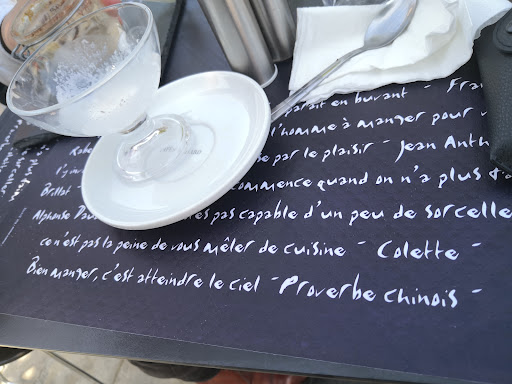 parait en buvant - Fra
l'homme à manger pour
Rabe
se par le plaisir - Jean Anth
Brillat
commence quand on n'a plus
Alphonse Dau
es pas capable d'un peu de sorcelle
ce n'est pas la peine de vous mêler de cuisine - Colette -
Bien manger, c'est atteindre le ciel - Proverbe chinois -